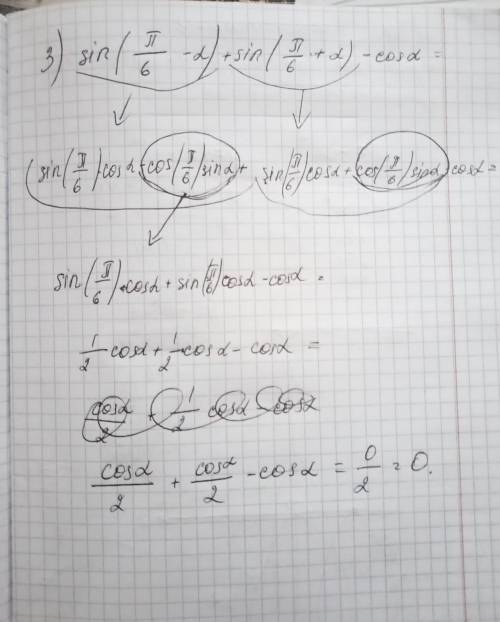 3) sin(π/6 - α) + sin(π/6 + α) - cosα =
(sin(π/6)cosα - cos(π/6)sinα) + sin(π/6)cosα + cos(π/6)sinα - cosα =
sin(π/6)·cosα + sin(π/6)cosα - cosα =
1/2 cosα + 1/2·cosα - cosα =
cosα/2 + 1/2 cosα - cosα
cosα/2 + cosα/2 - cosα = 0/2 = 0.